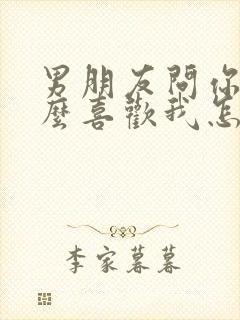 男朋友問你
麼喜歡我怎
李家暮暮